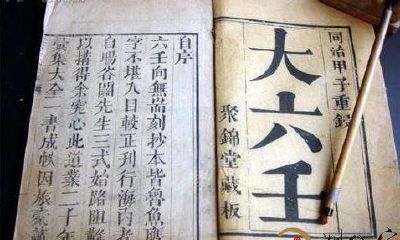 同治甲子重鐫
大六壬
聚錦堂藏板
自序
六壬向無耑刻抄本皆魯魚
字不堪入目較正刊行海內
自場谷闢先生三式始路阻
以搆得余究心此道業二十年
集大全一書成帙因旅